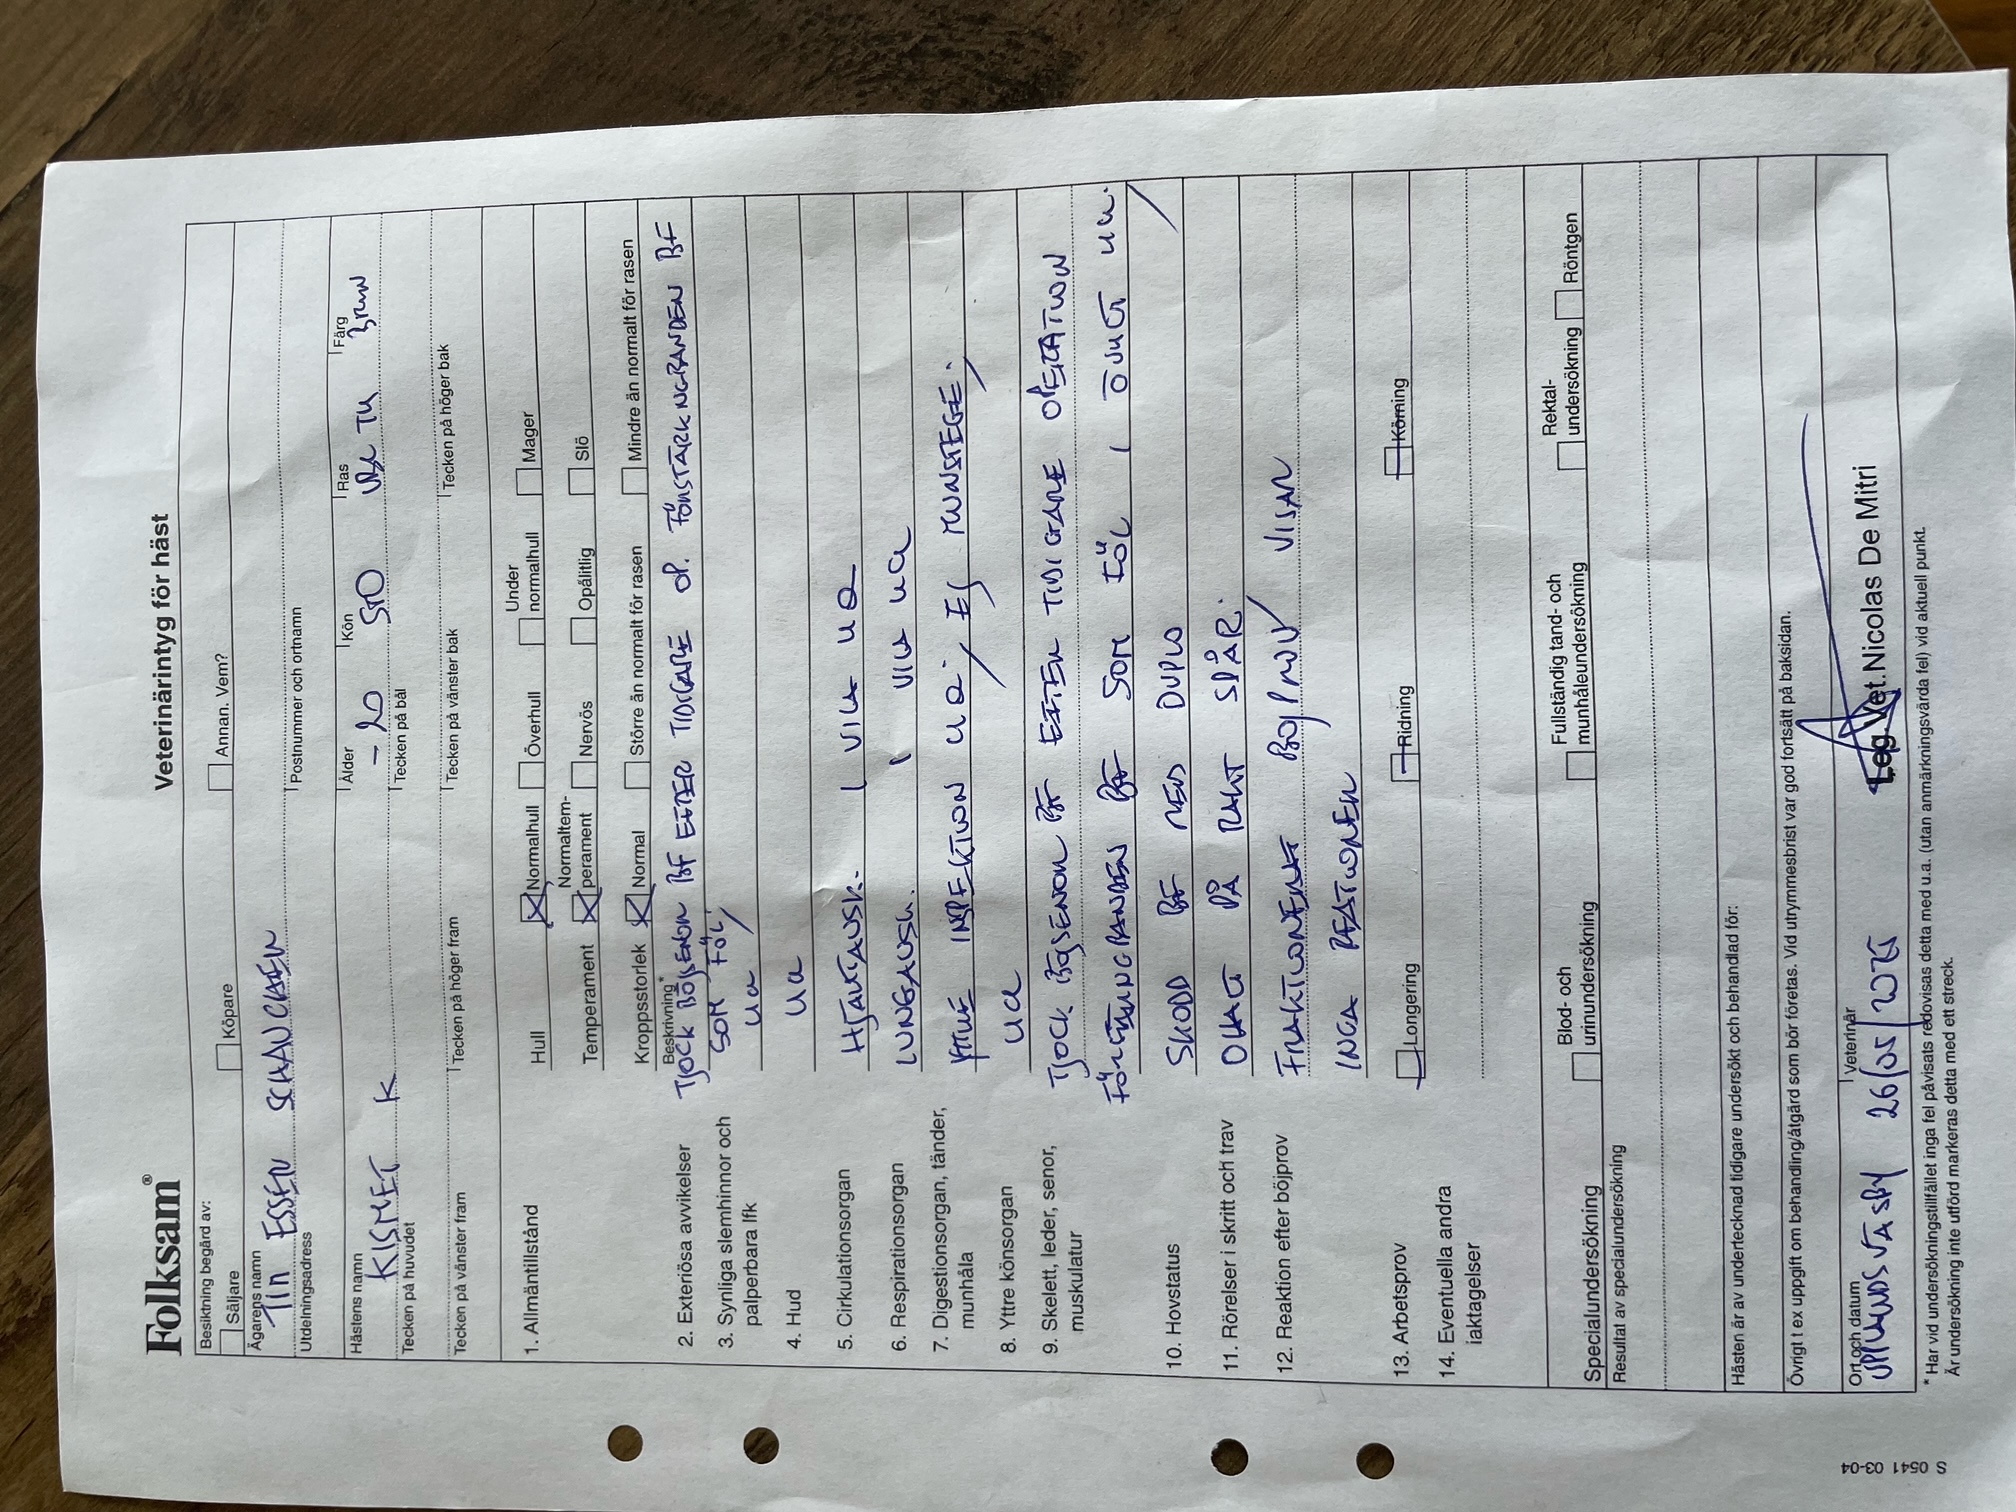 Folksam®
Veterinärintyg för häst
Besiktning begärd av:
Säljare Köpare Annan. Vem?
Ägarens namn
TIN ESSEN
Utdelningsadress Postnummer och ortnamn
Hästens namn Ålder Kön Ras Färg
KISMET K -20 STO TH BRUN
Tecken på huvudet Tecken på bål
Tecken på vänster fram Tecken på höger fram Tecken på vänster bak Tecken på höger bak
1. Allmäntillstånd Hull Normalhull Överhull Under normalhull Mager
Temperament Normaltem-perament Nervös Opålitlig Slö
Kroppsstorlek Normal Större än normalt för rasen Mindre än normalt för rasen
Beskrivning*
2. Exteriösa avvikelser TJOCK BÖJSENOR BF EFTER TIDIGARE OP. FÖRSTÄRKNGBANDEN BF
SOM FÖL,
3. Synliga slemhinnor och
palperbara lfk ua
4. Hud ua
5. Cirkulationsorgan HJÄRTAUSK. I VILA ua
6. Respirationsorgan LUNGAUSK. I VILA ua
7. Digestionsorgan, tänder,
munhåla YTTRE INSPEKTION ua, EJ MUNSTEGE.
8. Yttre könsorgan ua
9. Skelett, leder, senor,
muskulatur TJOCK BÖJSENOR BF EFTER TIDIGARE OPERATION
BANDEN BF SOM FÖL, ÖVRIGT ua.
10. Hovstatus SKODD BF MED DUPLO
11. Rörelser i skritt och trav OHALT PÅ RAKT SPÅR.
12. Reaktion efter böjprov FRAKTIONERAT BÖJPROV VISAR
INGA REAKTIONER
13. Arbetsprov Longering Ridning Körning
14. Eventuella andra
iakttagelser
Specialundersökning Blod- och urinundersökning Fullständig tand- och munhåleundersökning Rektal-undersökning Röntgen
Resultat av specialundersökning
Hästen är av undertecknad tidigare undersökt och behandlad för:
Övrigt t ex uppgift om behandling/åtgärd som bör företas. Vid utrymmesbrist var god fortsätt på baksidan.
Ort och datum Veterinär
UPPLANDS VÄSBY 26/05/2025 Leg.Vet.Nicolas De Mitri
* Har vid undersökningstillfället inga fel påvisats redovisas detta med u.a. (utan anmärkningsvärda fel) vid aktuell punkt.
Är undersökning inte utförd markeras detta med ett streck.
S 0541 03-04